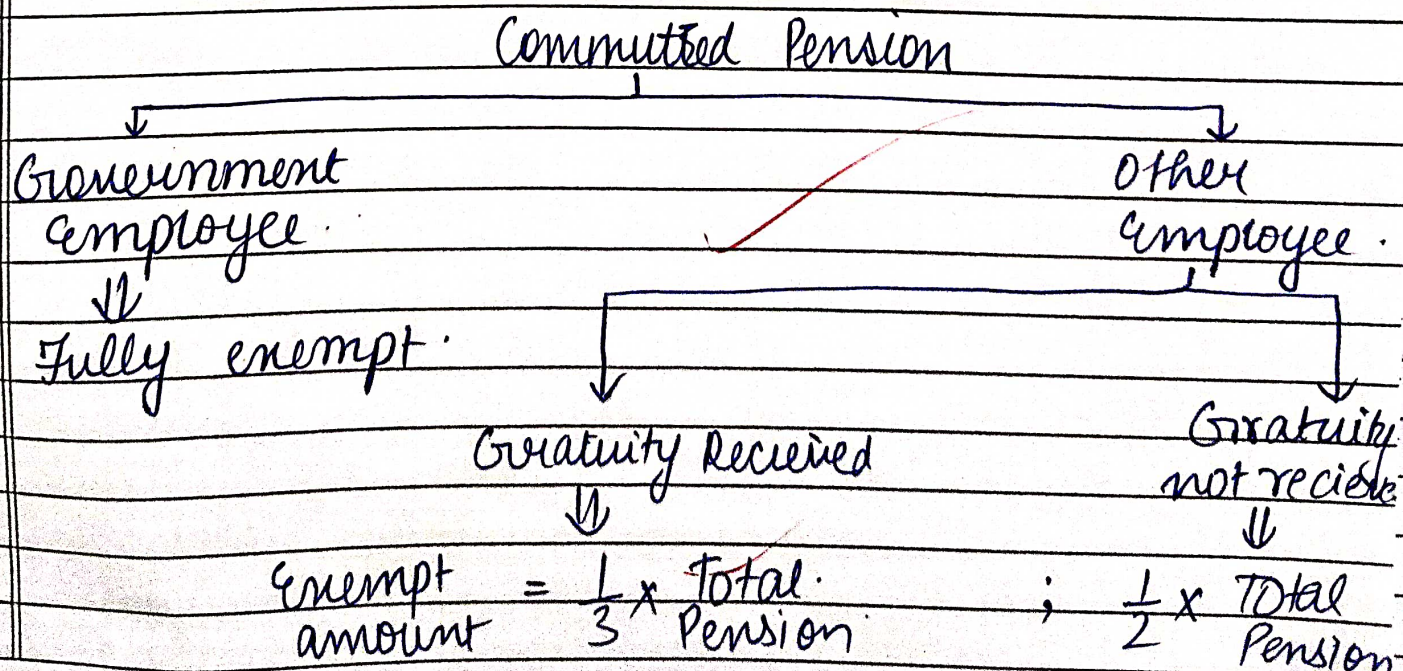 Commuted Pension
Government
employee.
Other
employee.
Fully exempt.
Gratuity Recieved
Gratuity
not recieve
Exempt
amount
= 1/3 × Total Pension
; 1/2 × Total Pension